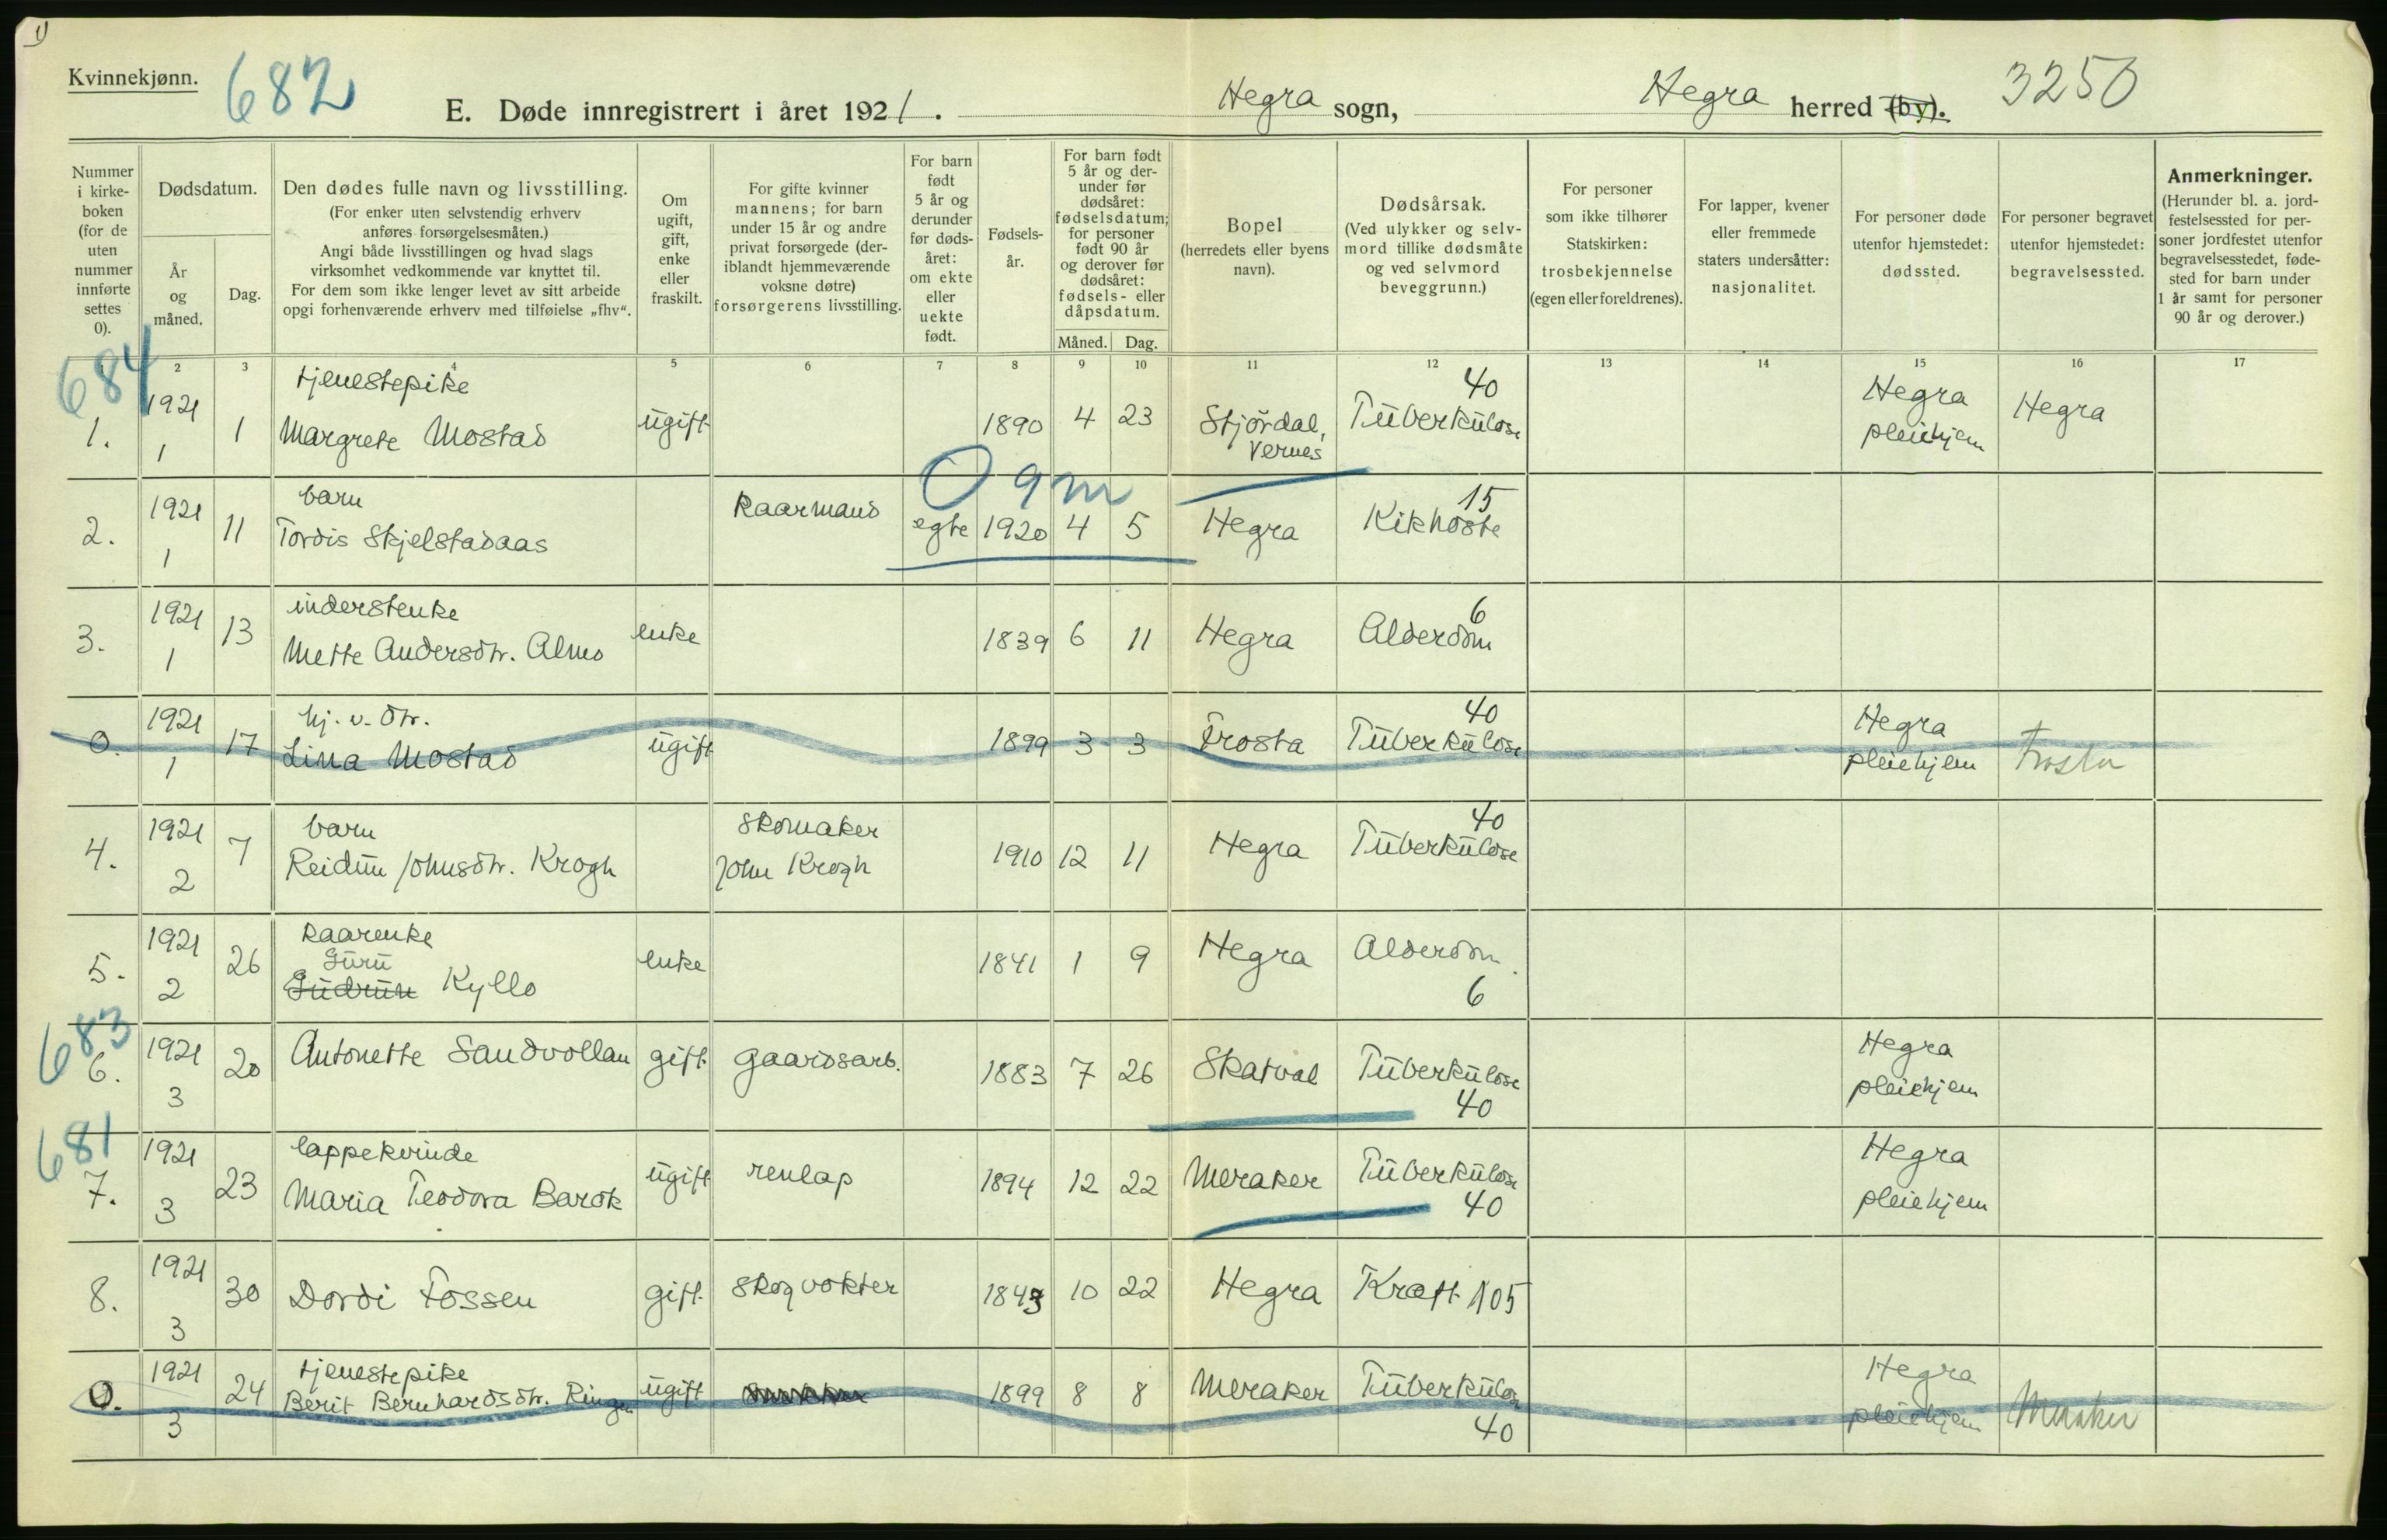 1)
Kvinnekjønn.
682
E. Døde innregistrert i året 1921. Hegra sogn, Hegra herred (by). 3250
Nummer i kirke-boken (for de uten nummer innførte settes 0).
Dødsdatum.
År og måned.
Dag.
Den dødes fulle navn og livsstilling.
(For enker uten selvstendig erhverv anføres forsørgelsesmåten.)
Angi både livsstillingen og hvad slags virksomhet vedkommende var knyttet til.
For dem som ikke lenger levet av sitt arbeide opgi forhenværende erhverv med tilføielse „fhv“.
Om ugift, gift, enke eller fraskilt.
For gifte kvinner mannens; for barn under 15 år og andre privat forsørgede (der-iblandt hjemmeværende voksne døtre) forsørgerens livsstilling.
For barn født 5 år og derunder før døds-året: om ekte eller uekte født.
Fødsels-år.
For barn født 5 år og der-under før dødsåret: fødselsdatum; for personer født 90 år og derover før dødsåret: fødsels- eller dåpsdatum.
Måned. Dag.
Bopel
(herredets eller byens navn).
Dødsårsak.
(Ved ulykker og selv-mord tillike dødsmåte og ved selvmord beveggrunn.)
For personer som ikke tilhører Statskirken: trosbekjennelse (egen eller foreldrenes).
For lapper, kvener eller fremmede staters undersåtter: nasjonalitet.
For personer døde utenfor hjemstedet: dødssted.
For personer begravet utenfor hjemstedet: begravelsessted.
Anmerkninger.
(Herunder bl. a. jord-festelsessted for per-soner jordfestet utenfor begravelsesstedet, føde-sted for barn under 1 år samt for personer 90 år og derover.)
1 2 3 4 5 6 7 8 9 10 11 12 13 14 15 16 17
684
1. 1921 1 1 tjenestepike Margrete Mostad ugift 1890 4 23 Stjørdal, Vernes Tuberkulose 40 Hegra pleiehjem Hegra
0 9 m
2. 1921 1 11 barn Tordis Skjelstadaas kaarmand egte 1920 4 5 Hegra Kikhoste 15
3. 1921 1 13 inderstenke Mette Andersdtr. Almo enke 1839 6 11 Hegra Alderdom 6
0. 1921 1 17 hj. v. dtr. Lina Mostad ugift 1899 3 3 Frosta Tuberkulose 40 Hegra pleiehjem Frosta
4. 1921 2 7 barn Reidun Johnsdtr. Krogh skomaker John Krogh 1910 12 11 Hegra Tuberkulose 40
5. 1921 2 26 kaarenke Guru Gudrun Kyllo enke 1841 1 9 Hegra Alderdom 6
683
6. 1921 3 20 Antonette Sandvollan gift gaardsarb. 1883 7 26 Skatval Tuberkulose 40 Hegra pleiehjem
681
7. 1921 3 23 lappekvinde Maria Teodora Barok ugift renlap 1894 12 22 Meraker Tuberkulose 40 Hegra pleiehjem
8. 1921 3 30 Dordi Fossen gift skogvokter 1843 10 22 Hegra Kræft 105
0. 1921 3 24 tjenestepike Berit Bernhardsdtr. Ringen ugift 1899 8 8 Meraker Tuberkulose 40 Hegra pleiehjem Meraker